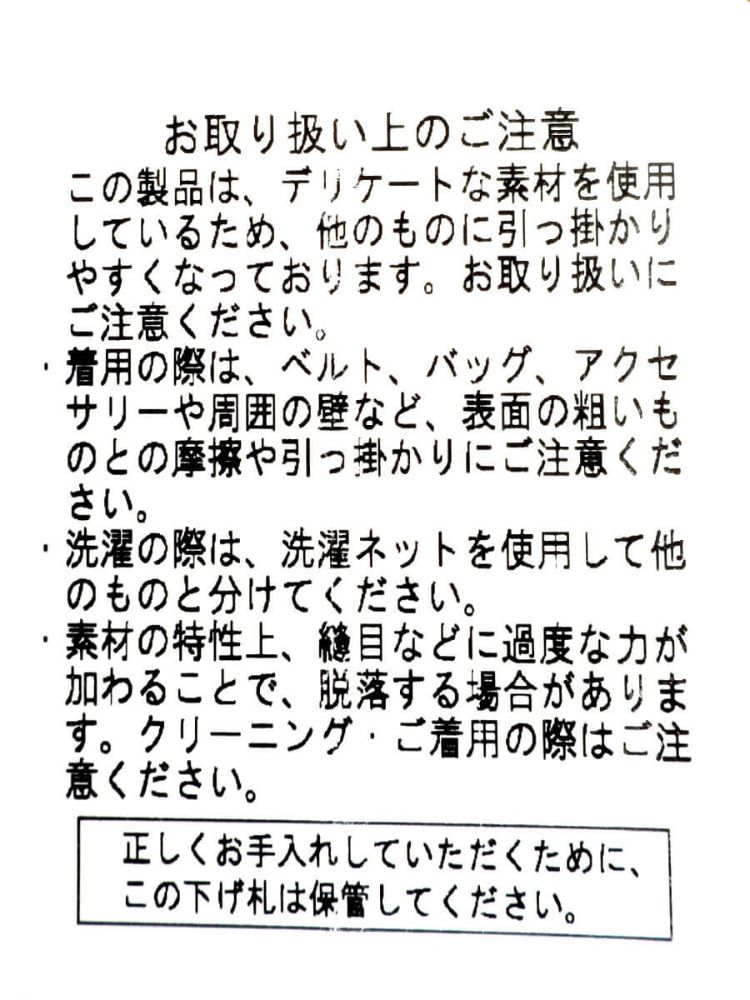 お取り扱い上のご注意
この製品は、デリケートな素材を使用
しているため、他のものに引っ掛かり
やすくなっております。お取り扱いに
ご注意ください。
・着用の際は、ベルト、バッグ、アクセ
サリーや周囲の壁など、表面の粗いも
のとの摩擦や引っ掛かりにご注意くだ
さい。
・洗濯の際は、洗濯ネットを使用して他
のものと分けてください。
・素材の特性上、縫目などに過度な力が
加わることで、脱落する場合がありま
す。クリーニング・ご着用の際はご注
意ください。
正しくお手入れしていただくために、
この下げ札は保管してください。